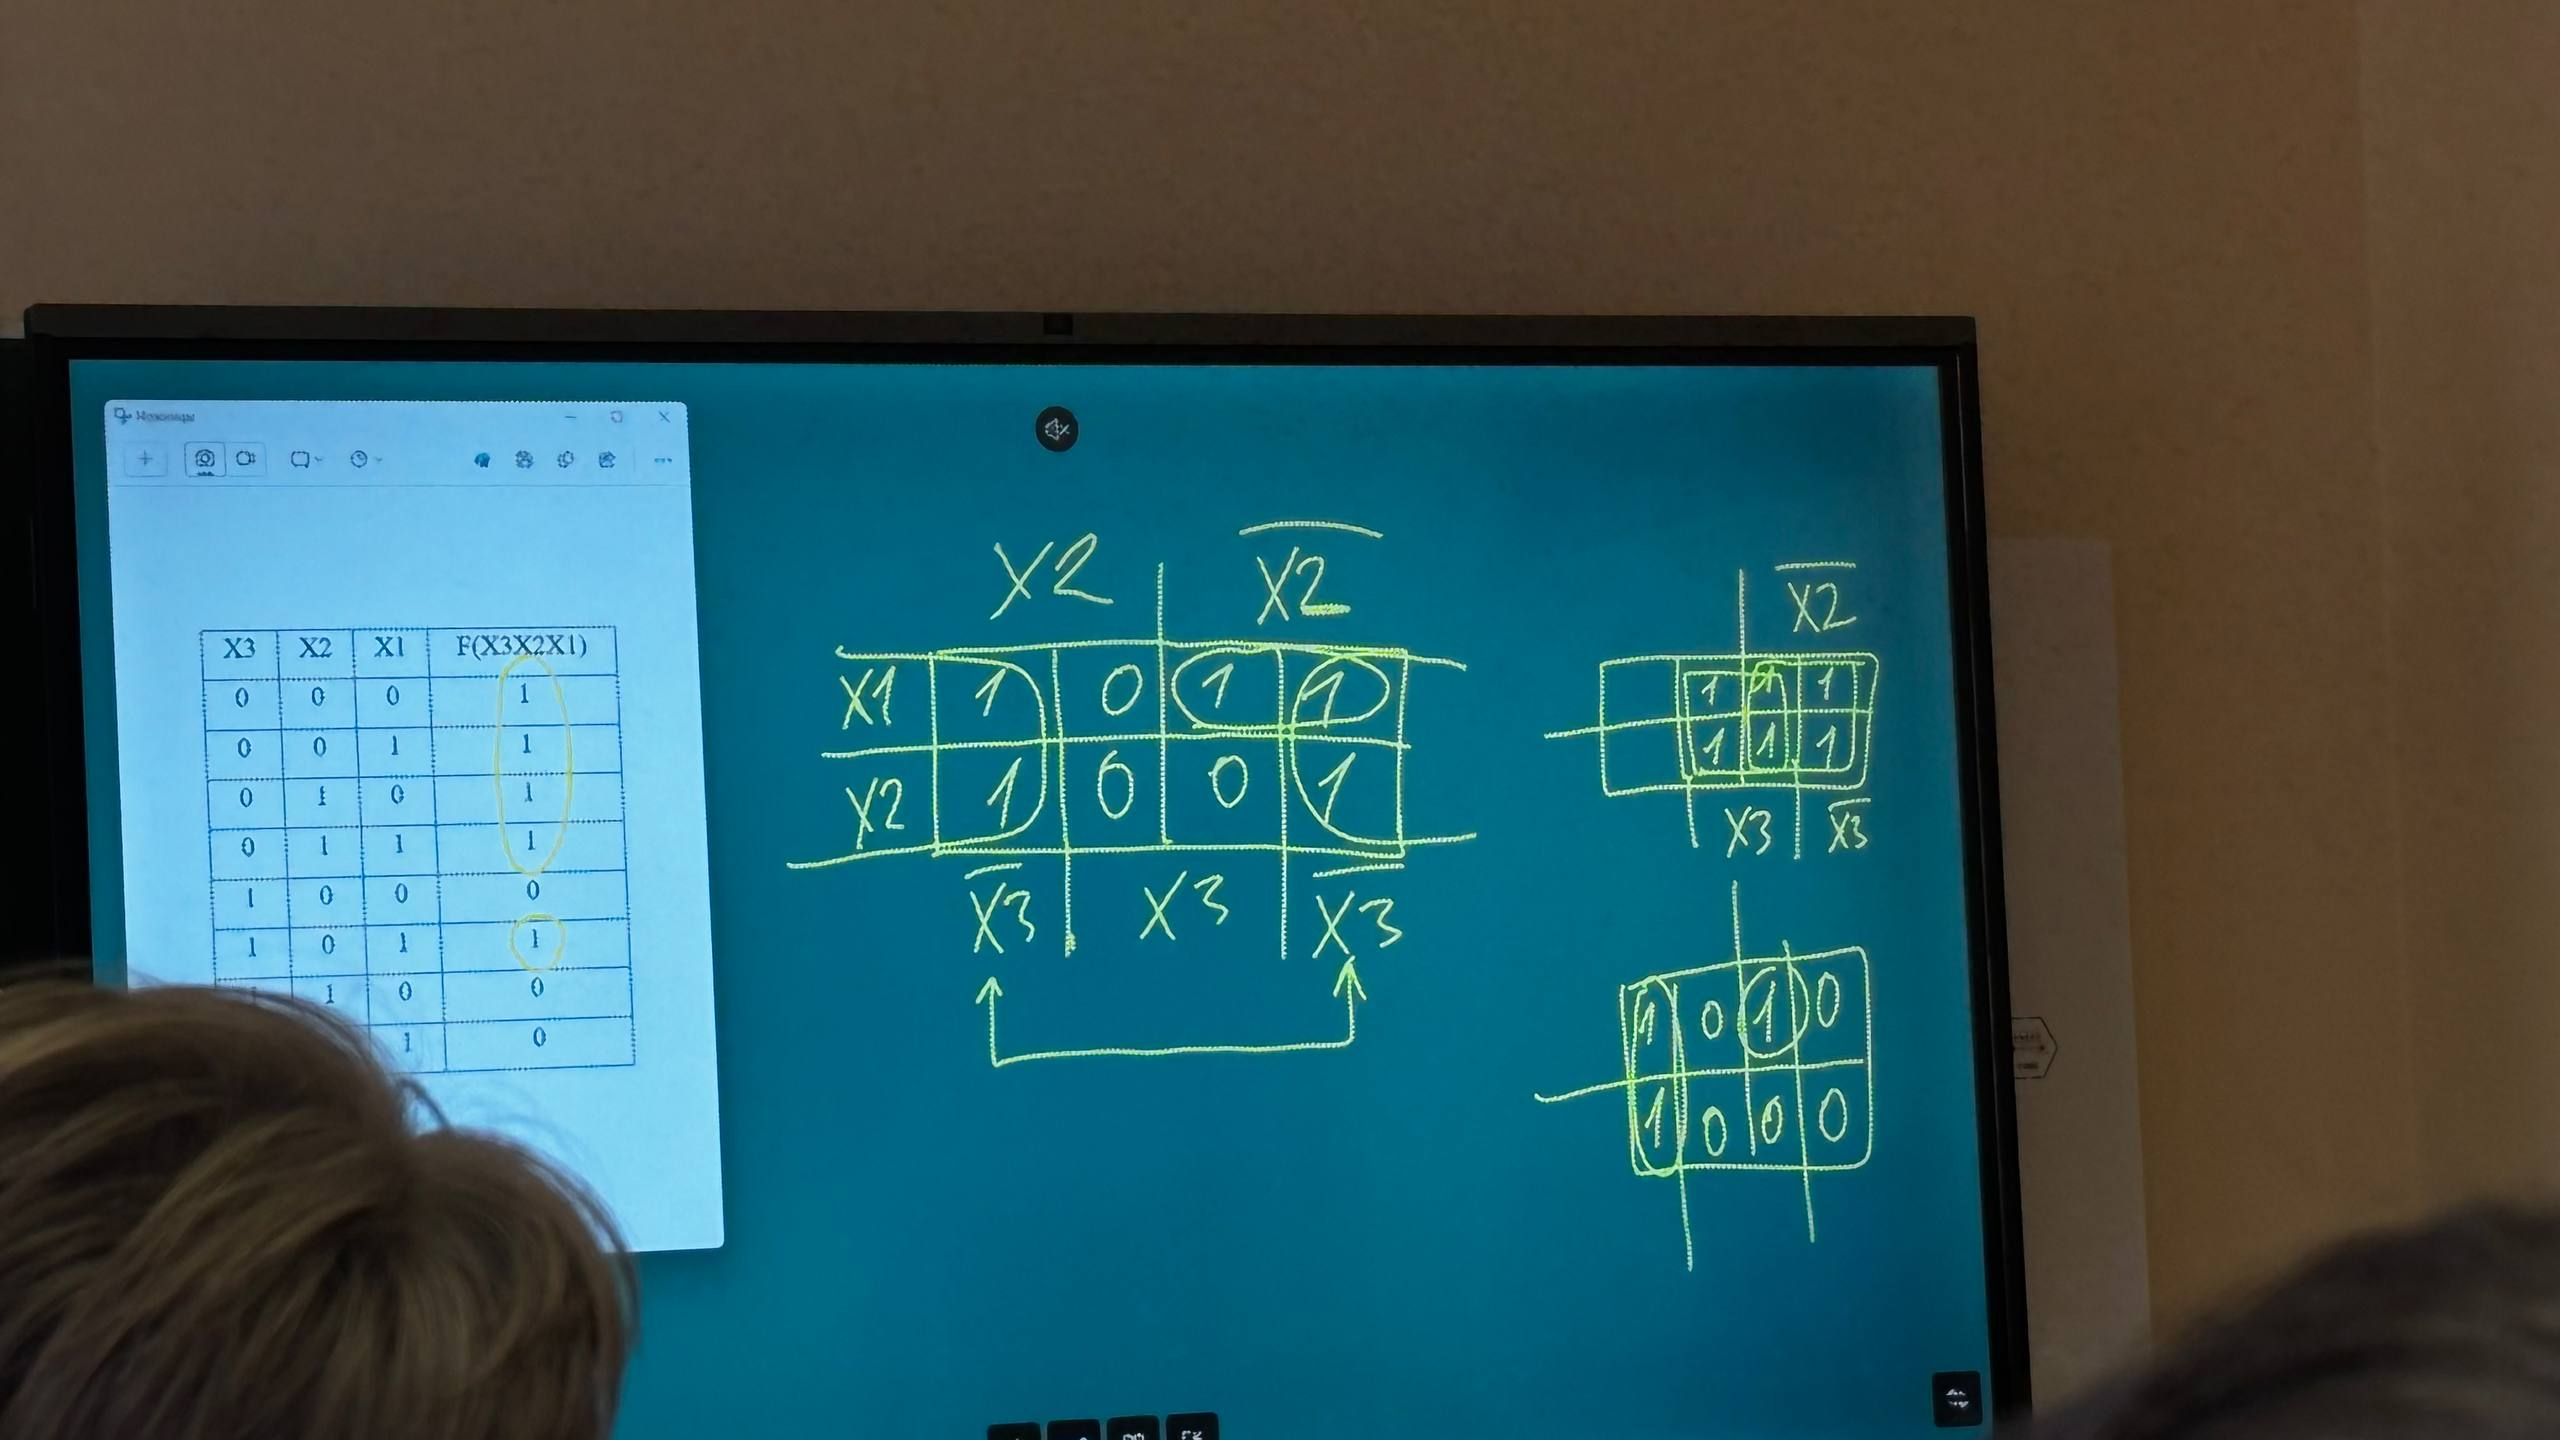 Ножницы
X3 X2 X1 F(X3X2X1)
0 0 0 1
0 0 1 1
0 1 0 1
0 1 1 1
1 0 0 0
1 0 1 1
1 0 0
1 0
X2 X̅2̅
X1 1 0 1 1
X2 1 0 0 1
X̅3̅ X3 X̅3̅
X̅2̅
1 1 1
1 1 1
X3 X̅3̅
1 0 1 0
1 0 0 0